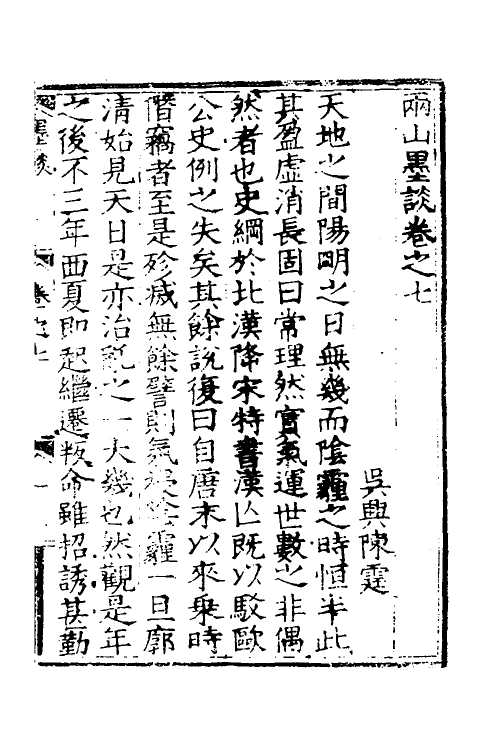 兩山墨談卷之七
吳興陳霆
天地之間陽明之日無幾而陰霾之時恒半此
其盈虛消長固曰常理然實氣運世數之非偶
然者也史綱於北漢降宋特書漢亡既以駁歐
公史例之失矣其餘說復曰自唐末以來乗時
僭竊者至是殄滅無餘譬則氣陰霾一旦廓
清始見天日是亦治亂之一大幾也然觀是年
之後不三年西夏即起繼遷叛命雖招誘甚勤
墨談
卷之七
一